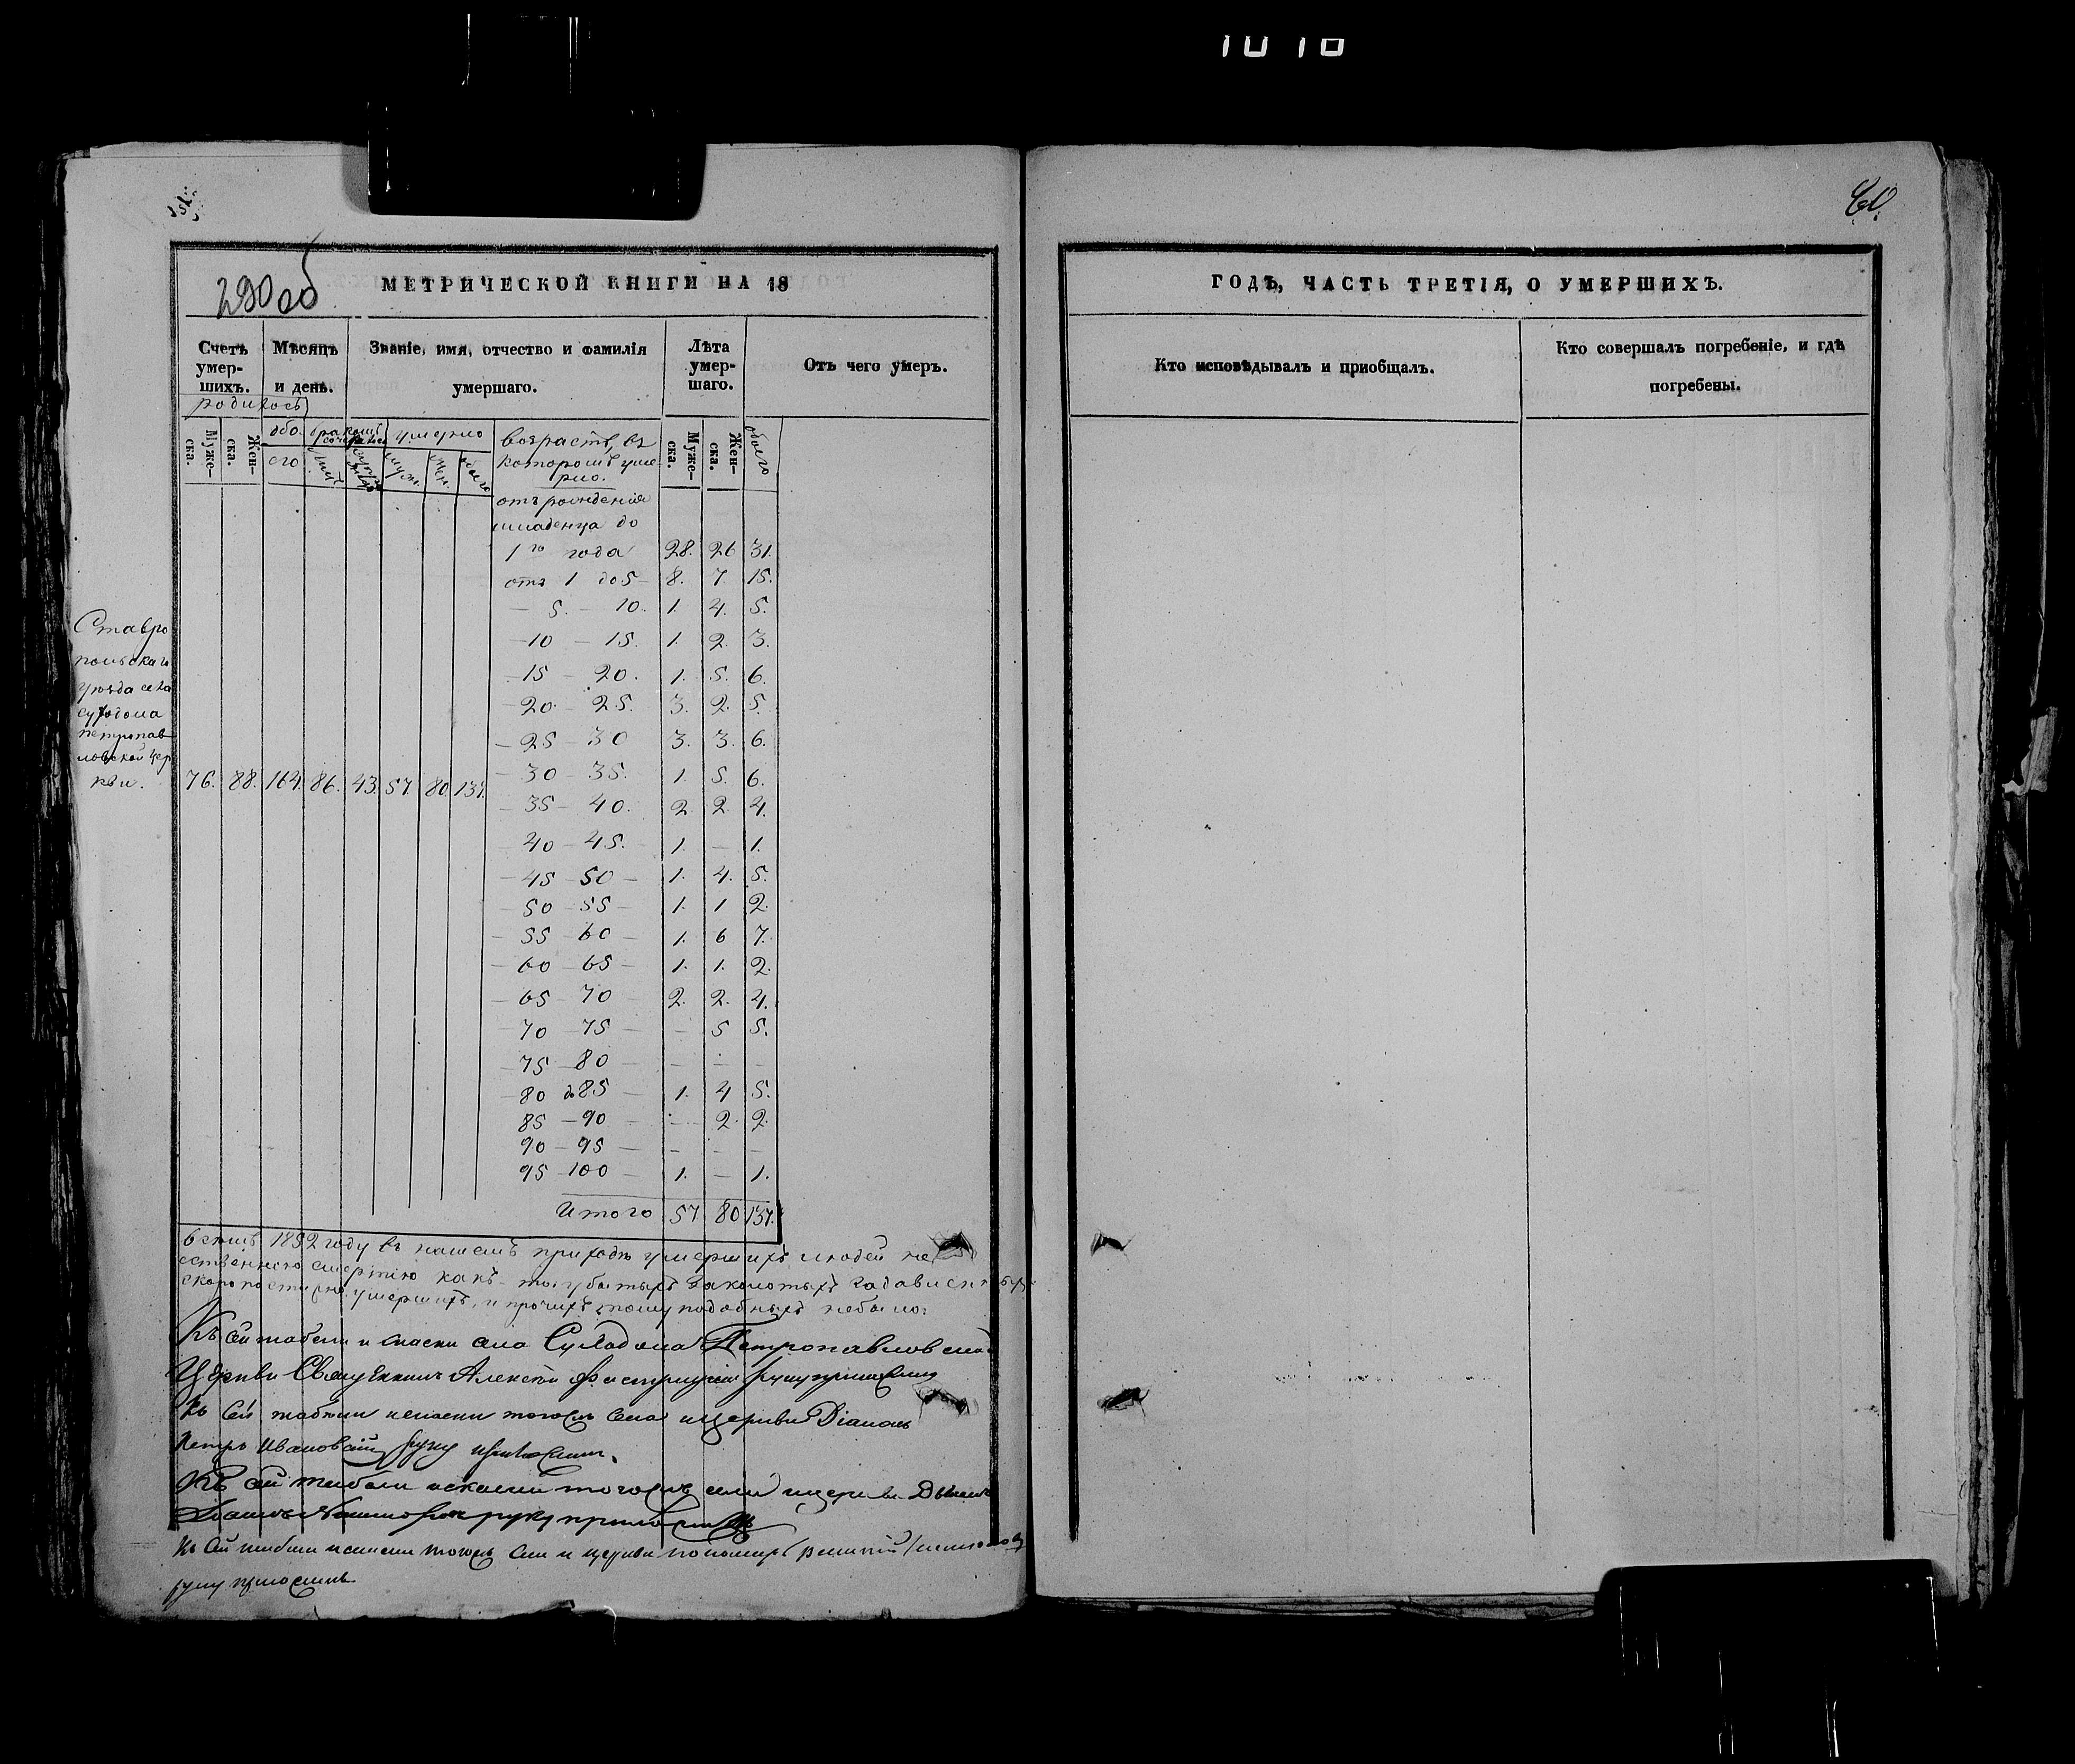 1010
290 об
МЕТРИЧЕСКОЙ КНИГИ НА 18
Счетъ умер-шихъ.
Мѣсяцъ и день.
Званіе, имя, отчество и фамилія умершаго.
Лѣта умер-шаго.
Отъ чего умеръ.
родилось
Муже-ска.
Жен-ска.
обо-его
умерло
муж.
жен.
обоего
возрастъ, въ которомъ умерло.
Муже-ска.
Жен-ска.
обоего
отъ рожденія
младенца до
1го года 28. 26 31.
отъ 1 до 5 – 8. 7. 15.
– 5. – 10. 1. 4. 5.
– 10 – 15. 1. 2. 3.
– 15 – 20. 1. 5. 6.
– 20 – 25. 3. 2. 5.
– 25 – 30 3. 3. 6.
– 30 – 35. 1. 5. 6.
– 35 – 40. 2. 2. 4.
– 40 – 45. 1. – 1.
– 45 – 50 – 1. 4. 5.
– 50 – 55 – 1. 1 2.
– 55 – 60 – 1. 6 7.
– 60 – 65 – 1. 1. 2.
– 65 – 70 2. 2. 4.
70 – 75 – – 5 5.
75 – 80 – – – –
80 до 85 – 1. 4 5.
85 – 90 – – 2. 2.
90 – 95 – – – –
95 – 100 – 1. – 1.
Итого 57 80 137.
Ставро
польскаго
уѣзда села
Суходола
петропав
ловской цер
кви.
76. 88. 164. 86. 43. 57. 80. 137.
въ семъ 1852 году въ нашемъ приходѣ умершихъ людей не
ественною смертію какъ-то: убитыхъ заколотыхъ
скоропостижно умершихъ, и прочихъ тому подобныхъ небыло:
Къ сей табели и села Суходола Петропавловской
Церкви Священникъ Алексѣй руку приложилъ
Къ сей табели тогожъ села и церкви Діаконъ
Петръ Ивановскій руку приложилъ.
Къ сей табели тогожъ села и церкви Дьячекъ
руку приложилъ
Къ сей табели тогожъ села и церкви пономарь
руку приложилъ
60.
ГОДЪ, ЧАСТЬ ТРЕТІЯ, О УМЕРШИХЪ.
Кто исповѣдывалъ и приобщалъ.
Кто совершалъ погребеніе, и гдѣ
погребены.